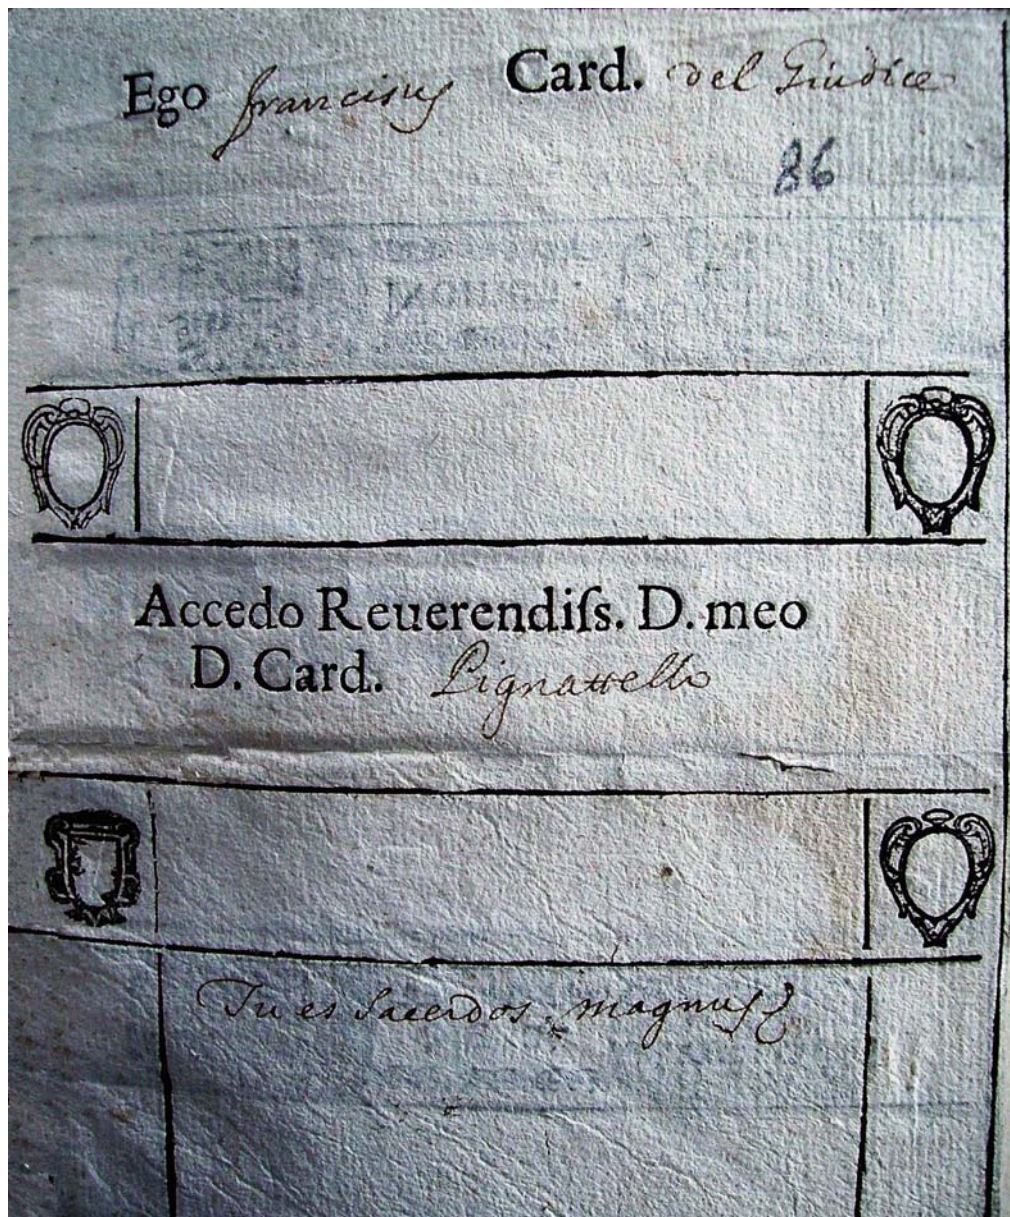 Ego franciscus Card. del Giudice
86
Accedo Reuerendiſs. D. meo
D. Card. Pignattello
Tu es Sacerdos magnus